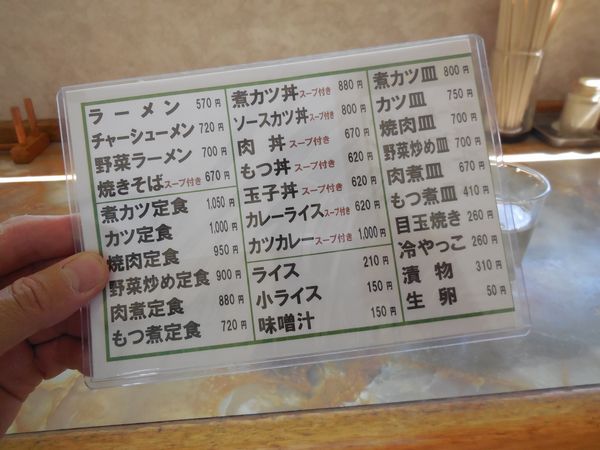 ラーメン 570円
チャーシューメン 720円
野菜ラーメン 700円
焼きそばスープ付き 670円
煮カツ定食 1,050円
カツ定食 1,000円
焼肉定食 950円
野菜炒め定食 900円
肉煮定食 880円
もつ煮定食 720円
煮カツ丼スープ付き 880円
ソースカツ丼スープ付き 800円
肉丼スープ付き 670円
もつ丼スープ付き 620円
玉子丼スープ付き 620円
カレーライススープ付き 620円
カツカレースープ付き 1,000円
ライス 210円
小ライス 150円
味噌汁 150円
煮カツ皿 800円
カツ皿 750円
焼肉皿 700円
野菜炒め皿 700円
肉煮皿 670円
もつ煮皿 410円
目玉焼き 260円
冷やっこ 260円
漬物 310円
生卵 50円